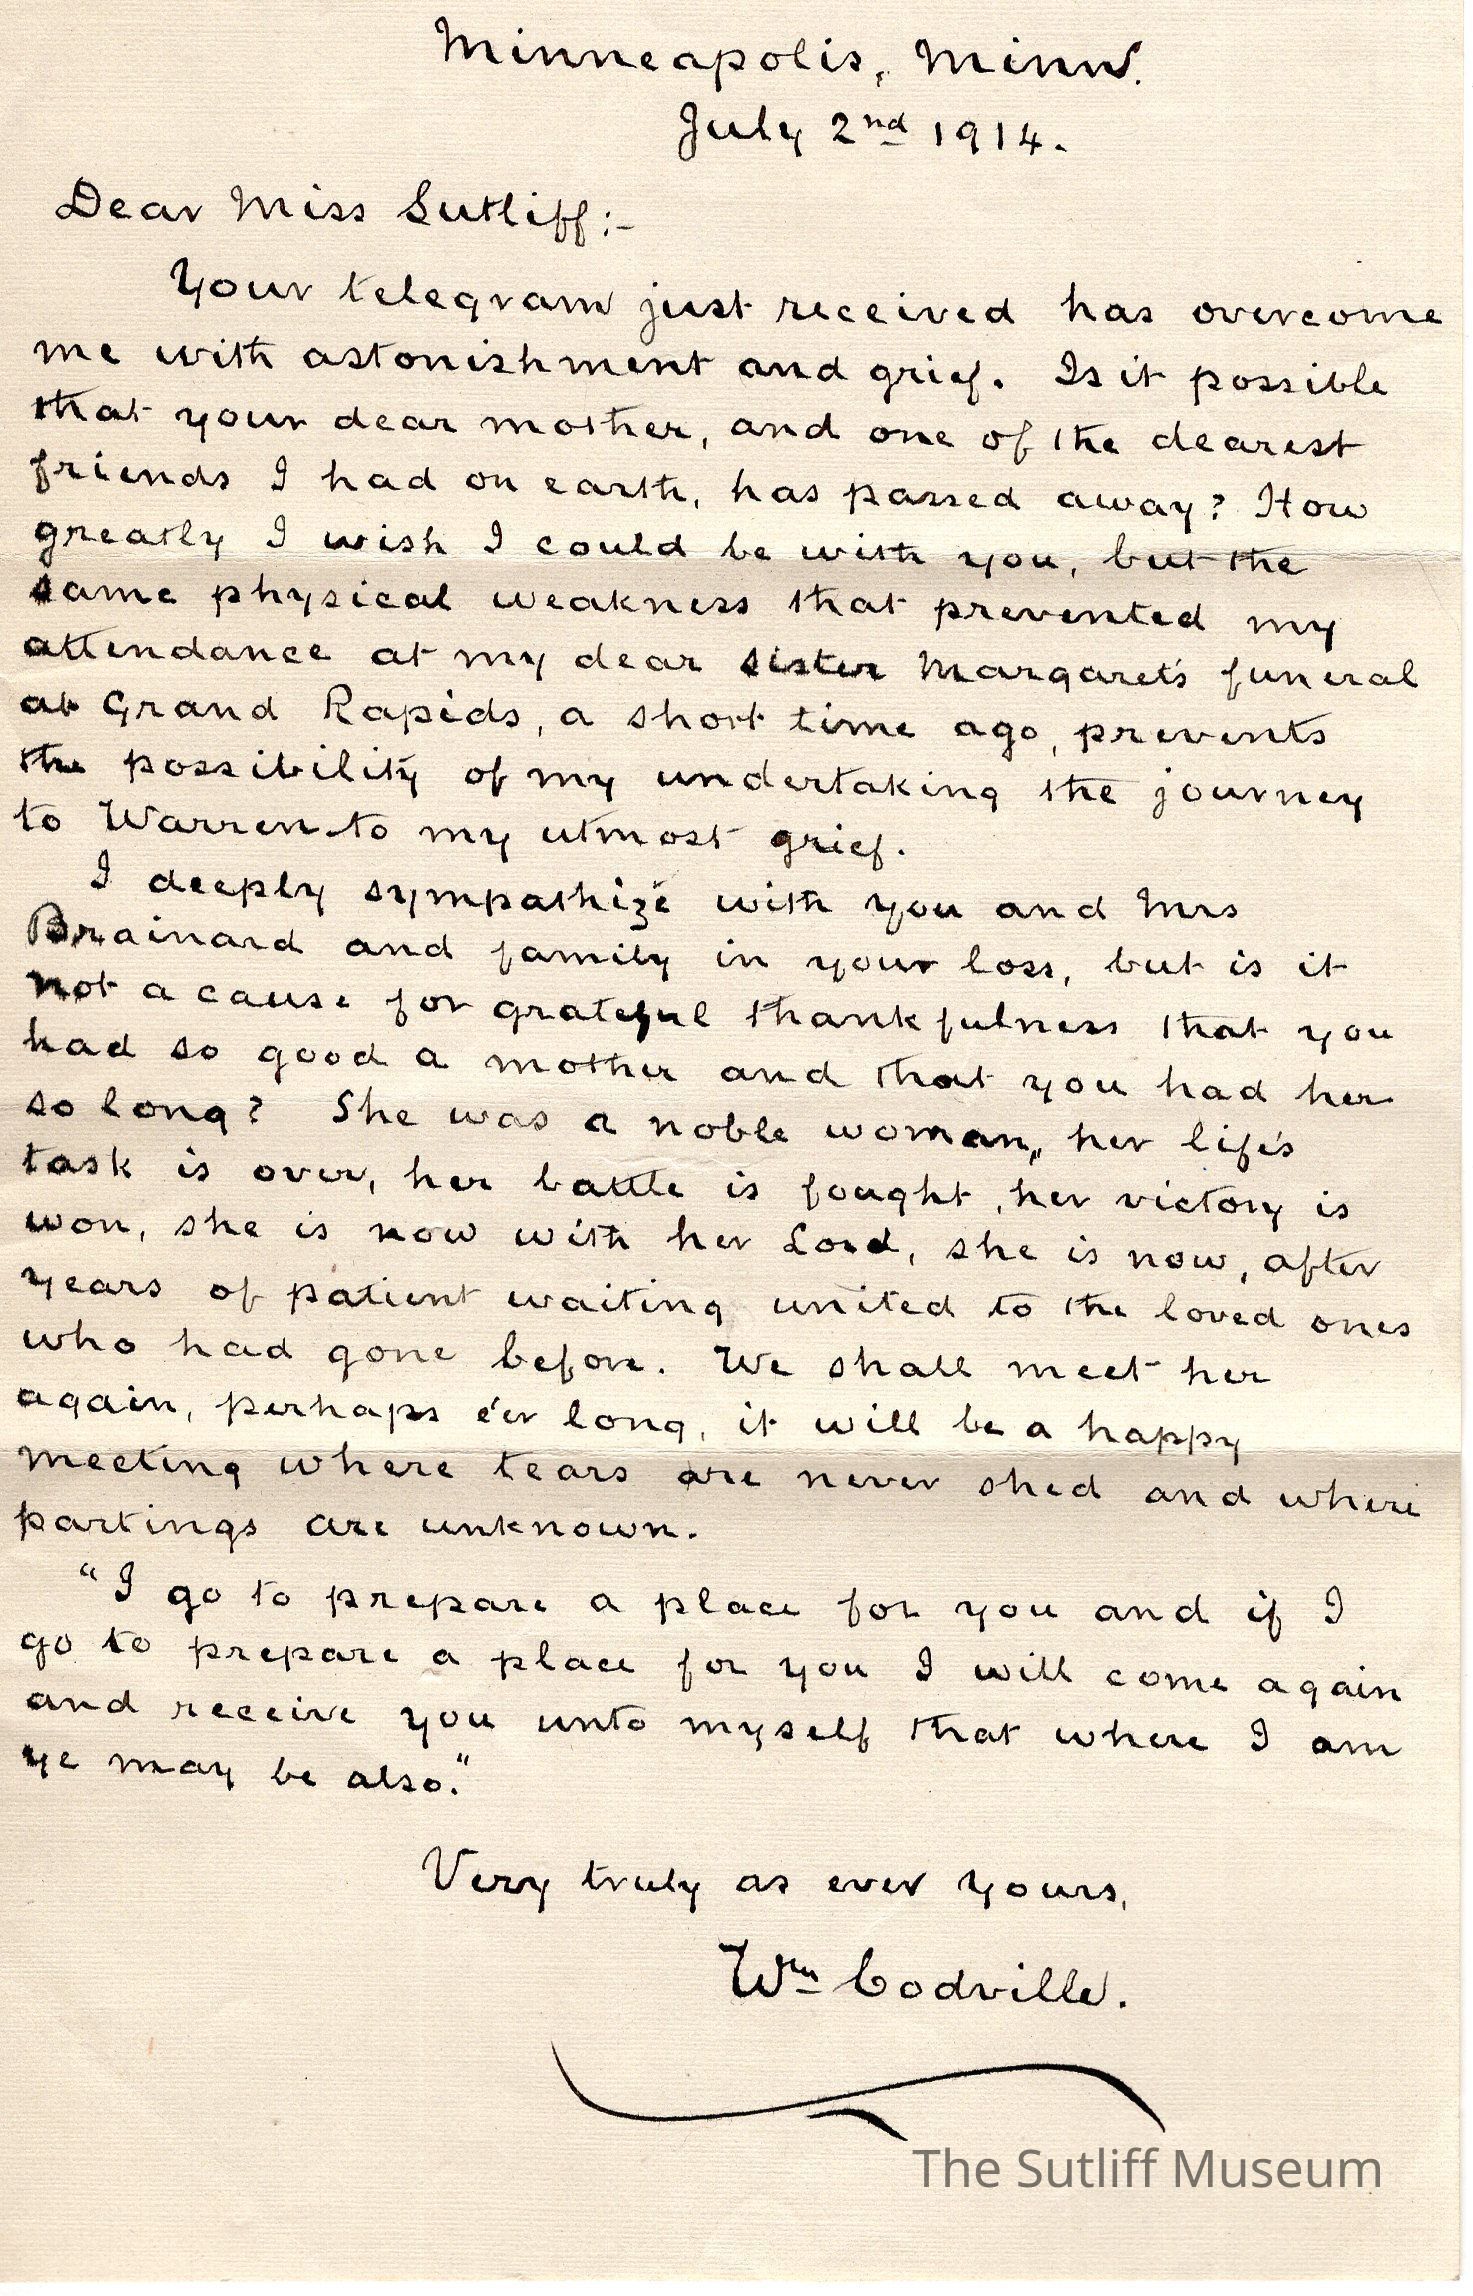 Minneapolis, Minn.
July 2nd 1914.
Dear Miss Sutliff:-
Your telegram just received has overcome
me with astonishment and grief. Is it possible
that your dear mother, and one of the dearest
friends I had on earth, has passed away? How
greatly I wish I could be with you, but the
same physical weakness that prevented my
attendance at my dear sister Margaret's funeral
at Grand Rapids, a short time ago, prevents
the possibility of my undertaking the journey
to Warren-to my utmost grief.
I deeply sympathize with you and Mrs
Brainard and family in your loss, but is it
not a cause for grateful thankfulness that you
had so good a mother and that you had her
so long? She was a noble woman, her life's
task is over, her battle is fought, her victory is
won, she is now with her Lord, she is now, after
years of patient waiting united to the loved ones
who had gone before. We shall meet her
again, perhaps e'er long, it will be a happy
meeting where tears are never shed and where
partings are unknown.
"I go to prepare a place for you and if I
go to prepare a place for you I will come again
and receive you unto myself that where I am
ye may be also."
Very truly as ever yours,
Wm Codville.
The Sutliff Museum